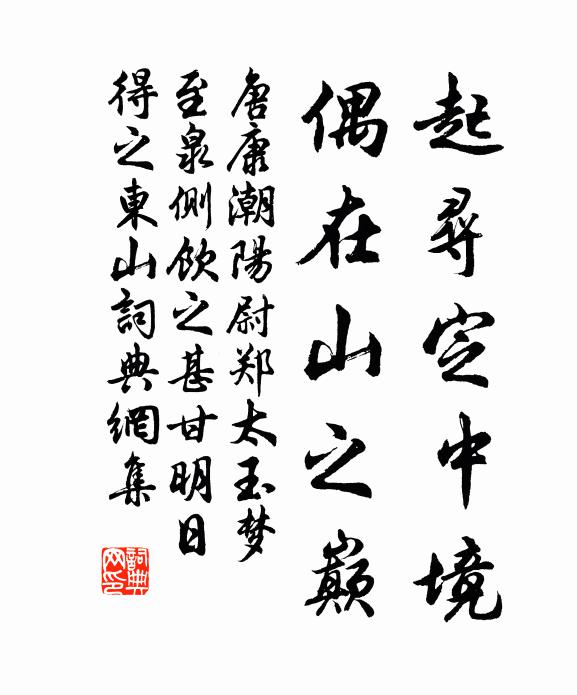 起尋定中境
偶在山之巔
唐庚潮陽尉郑太玉梦
至泉側飲之甚甘明日
得之東山詞典網集
詞典网印